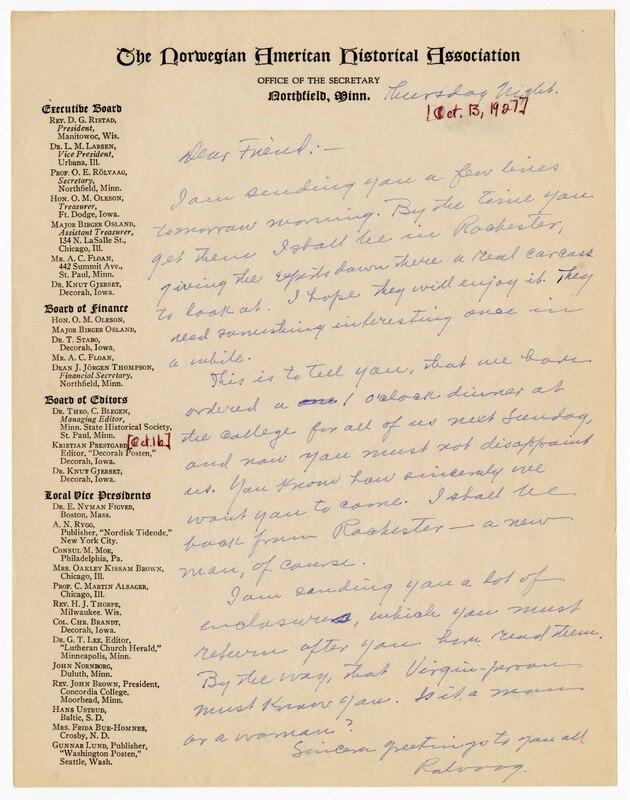 The Norwegian American Historical Association
OFFICE OF THE SECRETARY
Northfield, Minn.
Thursday Night.
[Oct. 13, 1927]
Executive Board
REV. D. G. RISTAD,
President,
Manitowoc, Wis.
DR. L. M. LARSEN,
Vice President,
Urbana, Ill.
PROF. O. E. RÖLVAAG,
Secretary,
Northfield, Minn.
HON. O. M. OLESON,
Treasurer,
Ft. Dodge, Iowa.
MAJOR BIRGER OSLAND,
Assistant Treasurer,
134 N. LaSalle St.,
Chicago, Ill.
MR. A. C. FLOAN,
442 Summit Ave.,
St. Paul, Minn.
DR. KNUT GJERSET,
Decorah, Iowa.
Board of Finance
HON. O. M. OLESON,
MAJOR BIRGER OSLAND,
DR. T. STABO,
Decorah, Iowa.
MR. A. C. FLOAN,
DEAN J. JÖRGEN THOMPSON,
Financial Secretary,
Northfield, Minn.
Board of Editors
DR. THEO. C. BLEGEN,
Managing Editor,
Minn. State Historical Society,
St. Paul, Minn.
KRISTIAN PRESTGARD
Editor, "Decorah Posten,"
Decorah, Iowa.
DR. KNUT GJERSET,
Decorah, Iowa.
Local Vice Presidents
DR. E. NYMAN FIGVED,
Boston, Mass.
A. N. RYGG,
Publisher, "Nordisk Tidende,"
New York City.
CONSUL M. MOE,
Philadelphia, Pa.
MRS. OAKLEY KISSAM BROWN,
Chicago, Ill.
PROF. C. MARTIN ALSAGER,
Chicago, Ill.
REV. H. J. THORPE,
Milwaukee. Wis.
COL. CHR. BRANDT,
Decorah, Iowa.
DR. G. T. LEE, Editor,
"Lutheran Church Herald,"
Minneapolis, Minn.
JOHN NORNBORG,
Duluth, Minn.
REV. JOHN BROWN, President,
Concordia College,
Moorhead, Minn.
HANS USTRUD,
Baltic, S. D.
MRS. FRIDA BUE-HOMNES,
Crosby, N. D.
GUNNAR LUND, Publisher,
"Washington Posten,"
Seattle, Wash.
Dear Friend:—
I am sending you a few lines
tomorrow morning. By the time you
get them I shall be in Rochester,
giving the experts down there a real carcass
to look at. I hope they will enjoy it. They
need something interesting once in
a while.
This is to tell you, that we have
ordered a one 1 o'clock dinner at
the college for all of us next Sunday,
[Oct.16]
and now you must not disappoint
us. You know how sincerely we
want you to come. I shall be
back from Rochester — a new
man, of course.
I am sending you a lot of
enclosures, which you must
return after you have read them.
By the way, that Virgin-person
must know you. Is it a man
or a woman?
Sincere greetings to you all
Rolvaag.